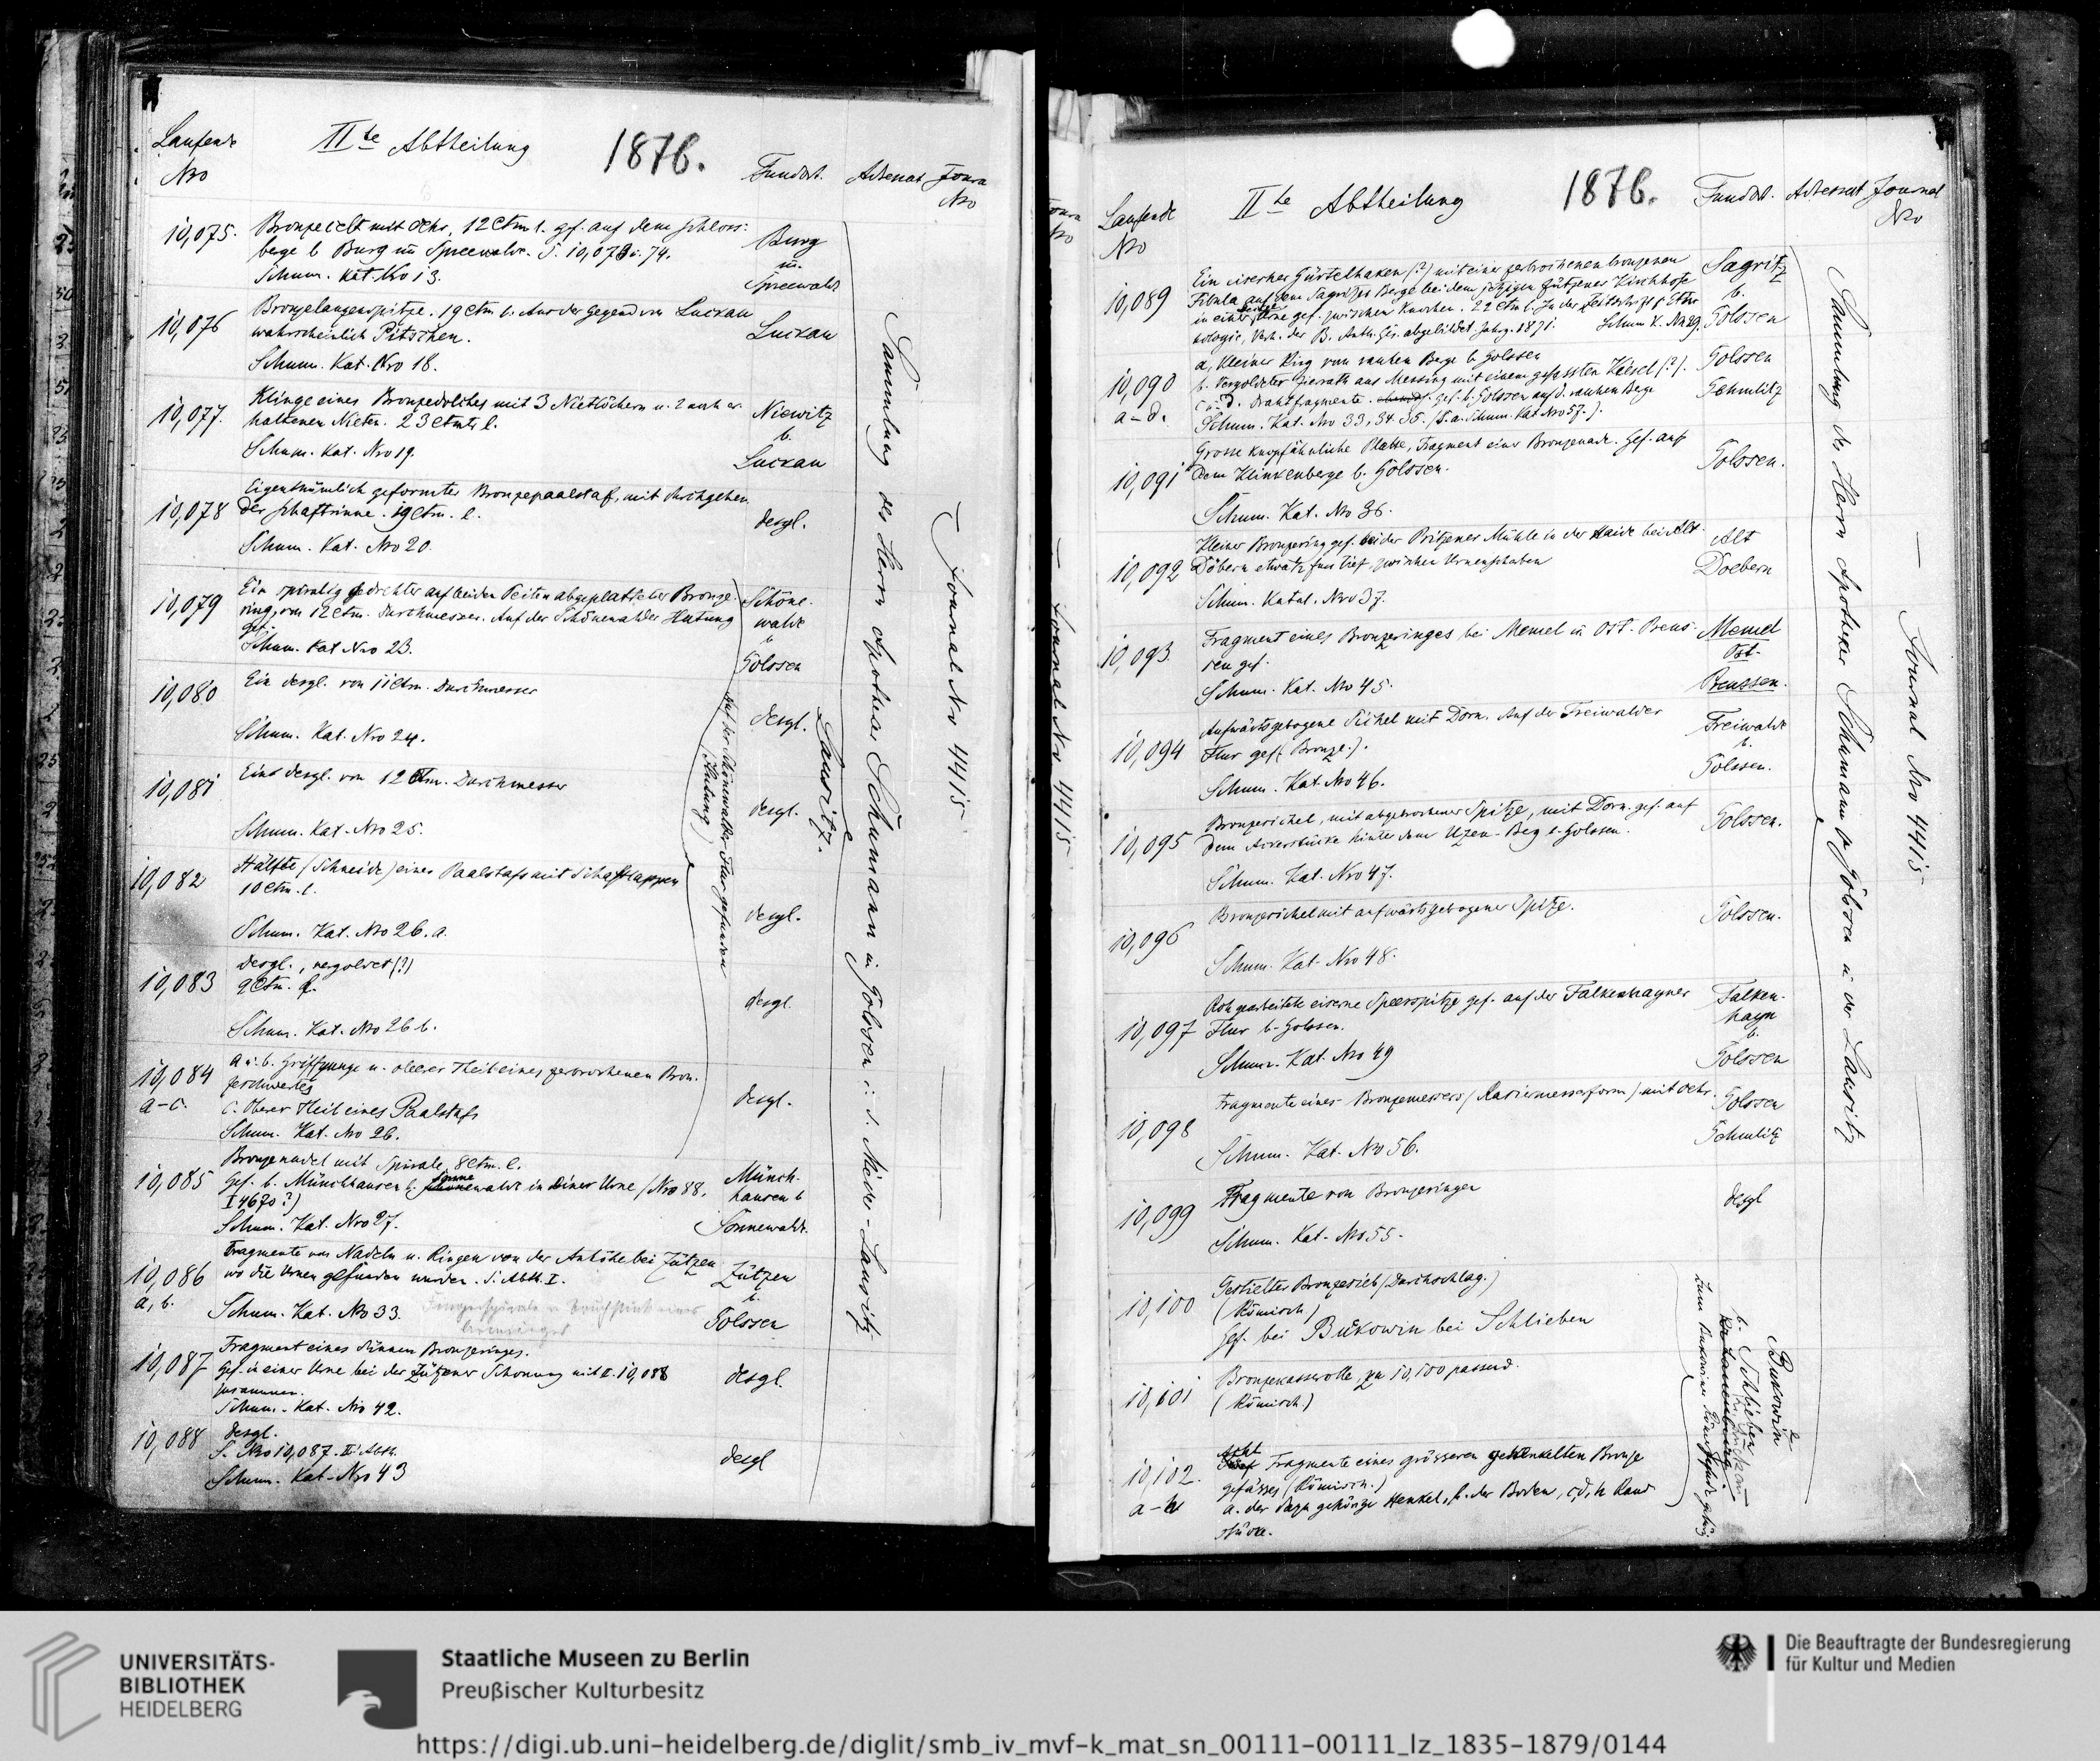 Laufende
Nro
IIte Abtheilung
1876.
Fundort.
Adressat
Journ
Nro
10,075.
Bronzecelt mit Oehr, 12 Ctm l. gef. auf dem Schloss-
berge b Burg im Spreewalde. S. 10,073 u. 74.
Schum. Kat. Nro 13.
Burg
im
Spreewald
10,076
Bronzelanzenspitze. 19 Ctm l. Aus der Gegend von Luckau
wahrscheinlich Pitschen.
Schum. Kat. Nro 18.
Luckau
10,077.
Klinge eines Bronzedolches mit 3 Nietlöchern u. 2 noch er-
haltenen Nieten. 23 Ctmtr l.
Schum. Kat. Nro 19.
Niewitz
b.
Luckau
10,078
Eigenthümlich geformter Bronzepaalstaf, mit durchgehen
der Schaftrinne. 19 Ctm. l.
Schum. Kat. Nro 20.
desgl.
10,079
Ein spiralig gedrehter auf beiden Seiten abgeplatteter Bronze-
ring, von 12 Ctm. Durchmesser. Auf der Schönewalder Hutung
gef.
Schum. Kat Nro 23.
Schöne-
walde
b
Golssen
10,080
Ein desgl. von 11 Ctm. Durchmesser
Schum. Kat. Nro 24.
desgl.
10,081
Eins desgl. von 12 Ctm. Durchmesser
Schum. Kat. Nro 25.
desgl.
10,082
Hälfte (Schneide) eines Paalstafs mit Schaftlappen
10 Ctm. l.
Schum. Kat. Nro 26. a.
desgl.
10,083
desgl., vergoldet (?)
9 Ctm. l.
Schum. Kat. Nro 26 b.
desgl
10,084
a-c.
a u. b. Griffzunge u. oberer Theil eines zerbrochenen Bron-
zeschwertes
c. Oberer Theil eines Paalstafs
Schum. Kat. Nro 26.
desgl.
auf der Schönewalder Flur gefunden
(Hutung)
10,085
Bronzenadel mit Spirale, 8 Ctm. l.
Gef. b. Münchhausen b. Sonnewalde in einer Urne (Nro 88.
I 4670?)
Schum. Kat. Nro 27.
Münch-
hausen b
Sonnewalde.
10,086
a, b.
Fragmente von Nadeln u. Ringen von der Anhöhe bei Zützen
wo die Urnen gefunden wurden. S. Abth. I.
Schum. Kat. Nro 33.
Fingerspirale u. Bruchstück eines
Zützen
b.
Golssen
10,087
Fragment eines dünnen Bronzeringes.
Gef. in einer Urne bei der Zützener Schonung mit II. 10,088
zusammen.
Schum. Kat. Nro 42.
desgl.
10,088
desgl.
S. Nro 10,087. II Abth.
Schum. Kat. Nro 43
desgl
Lausitz.
Sammlung des Herrn Apotheker Schumann in Golssen i. d. Nieder-Lausitz
Journal Nro 4415
Journ
Nro
Journal Nro 4415
Laufende
Nro
IIte Abtheilung
1876.
Fundort.
Adressat
Journal
Nro
10,089
Ein eiserner Gürtelhaken (?) mit einer zerbrochenen bronzenen
Fibula auf dem Sagritzer Berge bei dem jetzigen Zützener Kirchhofe
in einer Urne gef. zwischen Knochen. 22 Ctm l. In der Zeitschrift f. Eth
nologie, Verh. der B. Anth. Ges. abgebildet Jahrg. 1871. Schum K. Nro 29.
Sagritz
b.
Golssen
10,090
a-d.
a, Kleiner Ring vom rauhen Berge b Golssen
b. Vergoldeter Zierath aus Messing mit einem gefassten Kiesel (?).
c u. d. Drahtfragmente. gef. b. Golssen auf d. rauhen Berge
Schum. Kat. Nro 33, 34. 35. (S. a. Schum. Kat Nro 57.).
Golssen
Schmlitz
10,091
Grosse knopfähnliche Platte, Fragment einer Bronzenadel. Gef. auf
dem Klinkenberge b. Golssen.
Schum. Kat. Nro 36.
Golssen.
10,092
Kleiner Bronzering gef. bei der Pritzener Mühle in der Haide bei Alt-
Döbern etwa ½ fuss tief, zwischen Urnenscherben
Schum. Katal. Nro 37.
Alt
Doebern
10,093.
Fragment eines Bronzeringes bei Memel in Ost-Preus-
sen gef.
Schum. Kat. Nro 45.
Memel
Ost-
Preussen.
10,094
Aufwärtsgebogene Sichel mit Dorn. Auf der Freiwalder
Flur gef. (Bronze.).
Schum. Kat. Nro 46.
Freiwalde
b.
Golssen.
10,095
Bronzesichel, mit abgebrochener Spitze, mit Dorn. gef. auf
dem Ackerstücke hinter dem Uzen-Berg b. Golssen.
Schum. Kat. Nro 47.
Golssen.
10,096
Bronzesichel mit aufwärtsgebogener Spitze.
Schum. Kat. Nro 48.
Golssen.
10,097
Roh gearbeitete eiserne Speerspitze gef. auf der Falkenhayner
Flur b. Golssen.
Schum. Kat. Nro 49
Falken-
hayn
b.
Golssen
10,098
Fragmente eines Bronzemessers (Rasiermesserform) mit Oehr.
Schum. Kat. Nro 56.
Golssen
Schmlitz
10,099
Fragmente von Bronzeringen
Schum. Kat. Nro 55.
desgl
10,100
Gestieltes Bronzesieb (Durchschlag.)
(Römisch.)
Gef. bei Bukowin bei Schlieben
10,101
Bronzekasserolle, zu 10,100 passend.
(Römisch.)
10,102.
a-h
Acht Fragmente eines grösseren gehenkelten Bronze
gefässes (Römisch.)
a. der dazu gehörige Henkel, b. der Boden, c, d, h Rand
stücke.
Bukowin
b. Schlieben
zum Bukowiner Funde gehörig
Sammlung des Herrn Apotheker Schumann zu Golssen in der Lausitz
Journal Nro 4415
UNIVERSITÄTS-
BIBLIOTHEK
HEIDELBERG
Staatliche Museen zu Berlin
Preußischer Kulturbesitz
Die Beauftragte der Bundesregierung
für Kultur und Medien
https://digi.ub.uni-heidelberg.de/diglit/smb_iv_mvf-k_mat_sn_00111-00111_lz_1835-1879/0144